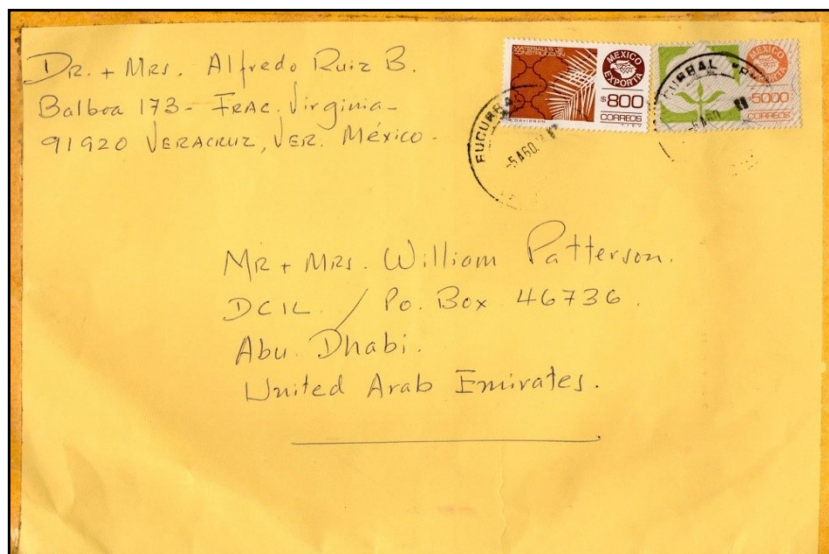 Dr. + Mrs. Alfredo Ruiz B.
Balboa 173 - Frac. Virginia -
91920 Veracruz, Ver. México.
MATERIALES DE CONSTRUCCION
MEXICO EXPORTA
$800
CORREOS
MEXICO EXPORTA
5000
CORREOS
-5 AGO.
Mr + Mrs. William Patterson.
DCIL / Po. Box 46736.
Abu Dhabi.
United Arab Emirates.